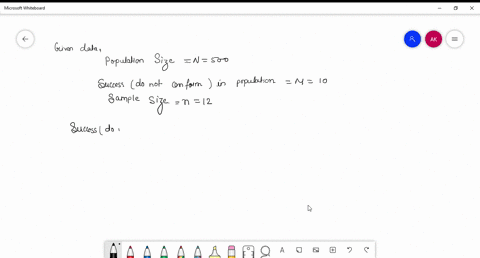 Microsoft Whiteboard
AK
Given data,
Population Size = N = 500
Success (do not conform) in population = M = 10
Sample Size = n = 12
Success (do
A